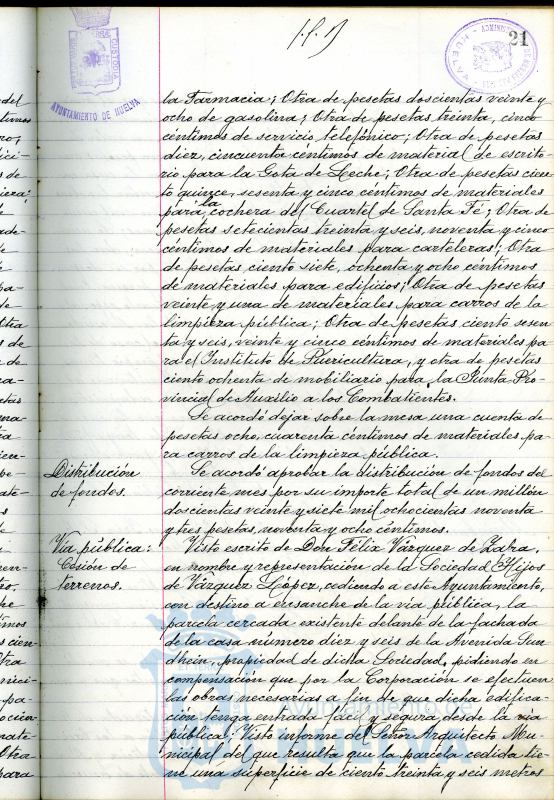 21
CUSTODIA
AYUNTAMIENTO DE HUELVA
la Farmacia; Otra de pesetas doscientas veinte y
ocho de gasolina; Otra de pesetas treinta, cinco
céntimos de servicio telefónico; Otra de pesetas
diez, cincuenta centimos de material de escrito
rio para la Gota de Leche; Otra de pesetas cien
to quince, sesenta y cinco centimos de materiales
para la cochera del Cuartel de Santa Fé; Otra de
pesetas setecientas treinta y seis, noventa y cinco
céntimos de materiales para carteleras; Otra
de pesetas ciento siete, ochenta y ocho céntimos
de materiales para edificios; Otra de pesetas
veinte y una de materiales para carros de la
limpieza pública; Otra de pesetas ciento sesen
ta y seis, veinte y cinco céntimos de materiales pa
ra el Instituto de Puericultura, y otra de pesetas
ciento ochenta de mobiliario para la Junta Pro-
vincial de Auxilio a los Combatientes.
Se acordó dejar sobre la mesa una cuenta de
pesetas ocho, cuarenta céntimos de materiales pa-
ra carros de la limpieza pública.
Distribución
de fondos.
Se acordó aprobar la distribución de fondos del
corriente mes por su importe total de un millón
doscientas veinte y siete mil ochocientas noventa
y tres pesetas, noventa y ocho céntimos.
Vía pública:
Cesión de
terrenos.
Visto escrito de Don Félix Vázquez de Zafra,
en nombre y representación de la Sociedad Hijos
de Vázquez López, cediendo a este Ayuntamiento,
con destino a ensanche de la vía pública, la
parcela cercada existente delante de la fachada
de la casa número diez y seis de la Avenida Sun
dhein, propiedad de dicha Sociedad, pidiendo en
compensación que por la Corporación se efectuen
las obras necesarias a fin de que dicha edifica-
ción tenga entrada fácil y segura desde la vía
pública; Visto informe del Señor Arquitecto Mu-
nicipal del que resulta que la parcela cedida tie-
ne una superficie de ciento treinta y seis metros
Ayuntamiento de
HUELVA